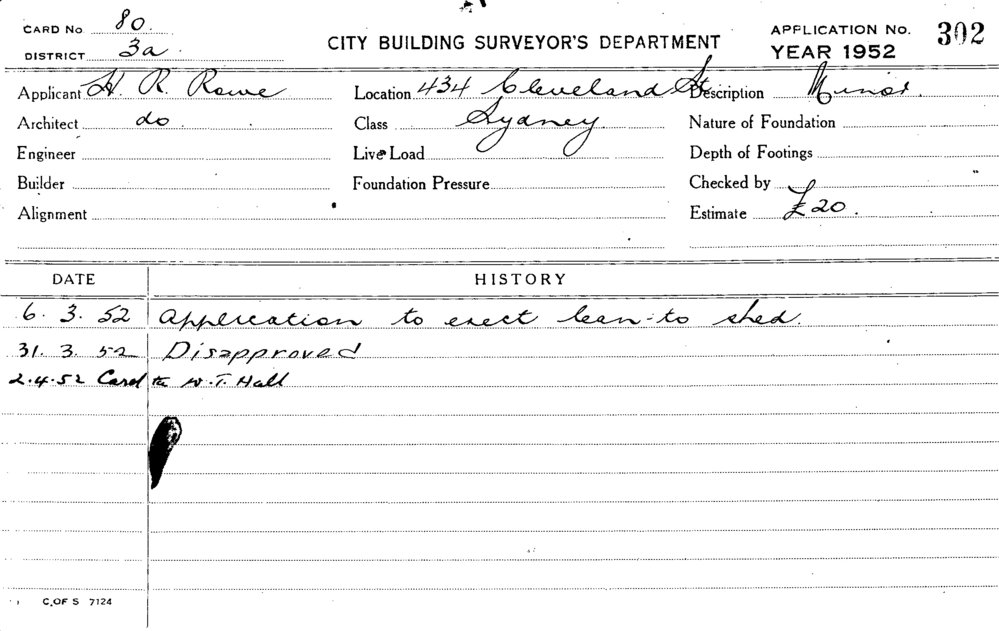 CARD No. 80.
DISTRICT 3a.
CITY BUILDING SURVEYOR'S DEPARTMENT
APPLICATION No. 302
YEAR 1952
Applicant H. R. Rowe
Location 434 Cleveland St.
Description Minor.
Architect do
Class Sydney
Nature of Foundation
Engineer
Live Load
Depth of Footings
Builder
Foundation Pressure
Checked by
Alignment
Estimate £20.
DATE HISTORY
6. 3. 52 Application to erect lean-to shed.
31. 3. 52 Disapproved
2.4.52 Card to W.T. Hall
C. OF S 7124